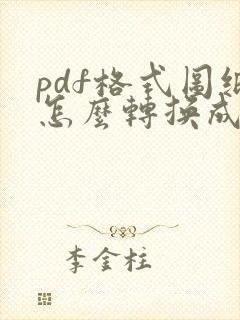 pdf格式圖紙
怎麼轉換成
李金柱